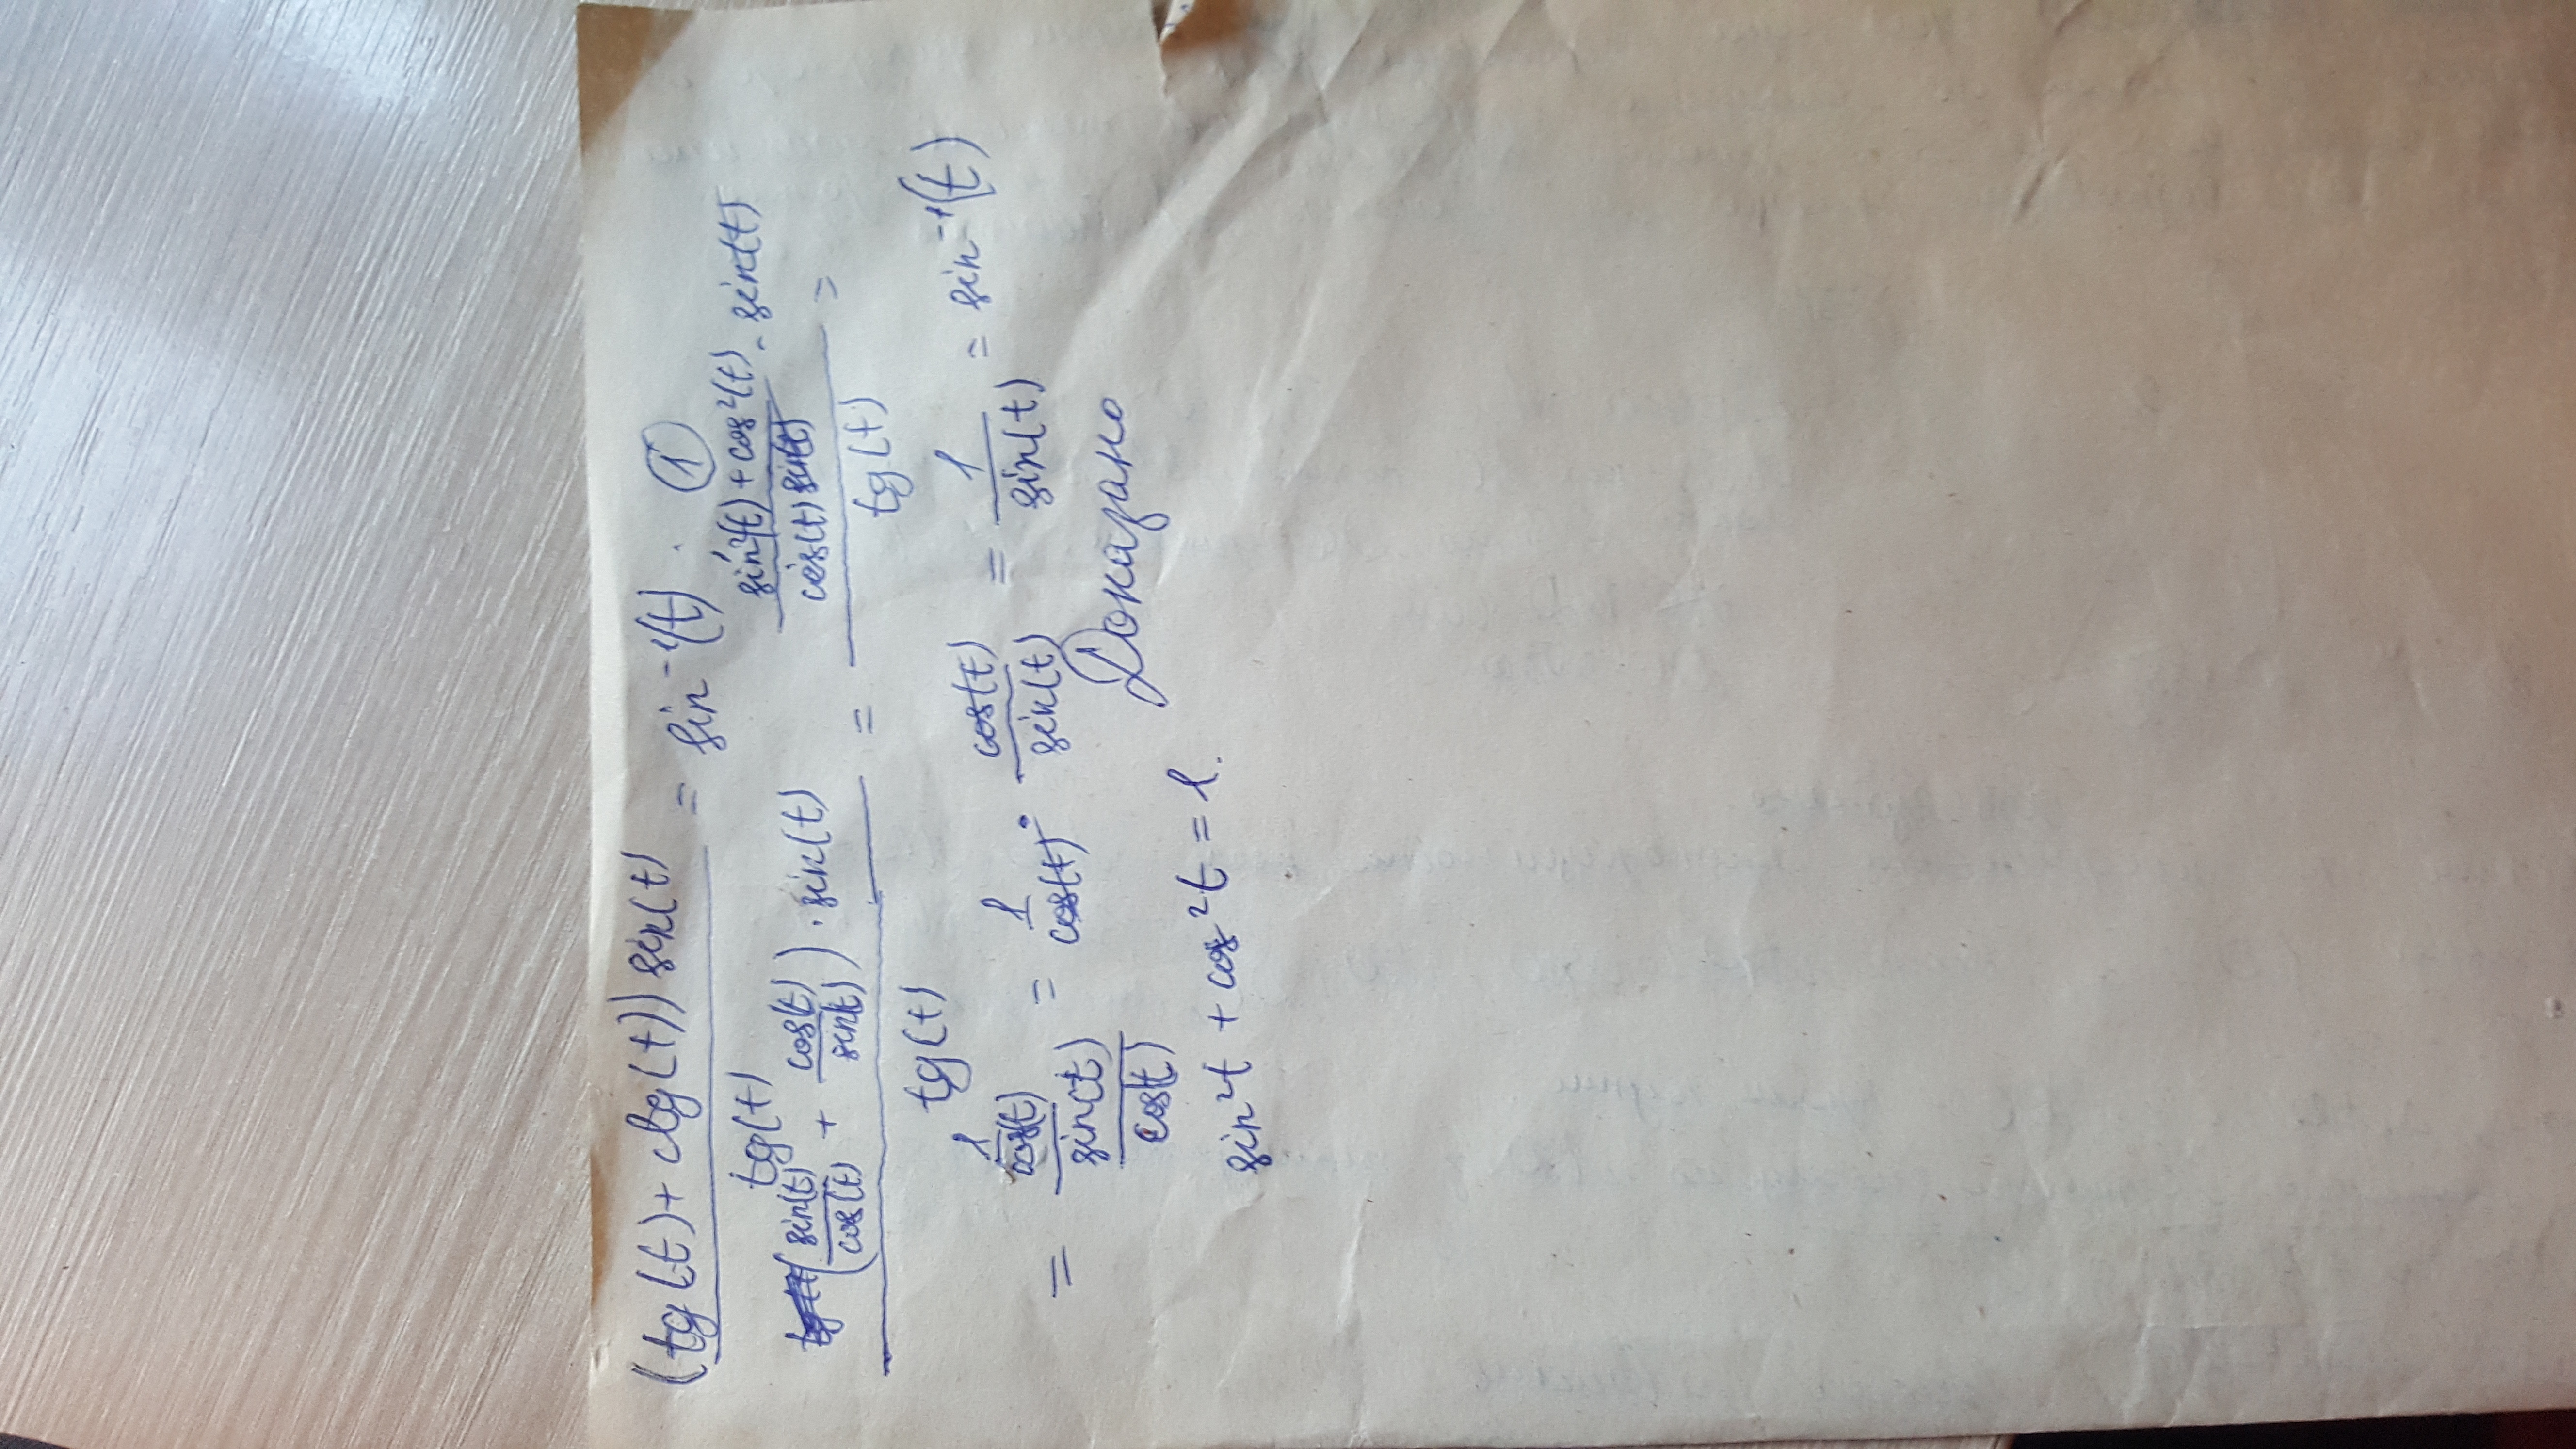 (tg(t) + ctg(t)) sin(t) / tg(t) = sin⁻¹(t). ①
((sin(t)/cos(t) + cos(t)/sin(t)) · sin(t)) / tg(t) = ((sin²(t) + cos²(t))/(cos(t) sin(t)) · sin(t)) / tg(t) =
= (1/cos(t)) / (sin(t)/cos(t)) = 1/cos(t) · cos(t)/sin(t) = 1/sin(t) = sin⁻¹(t)
sin²t + cos²t = 1. Доказано